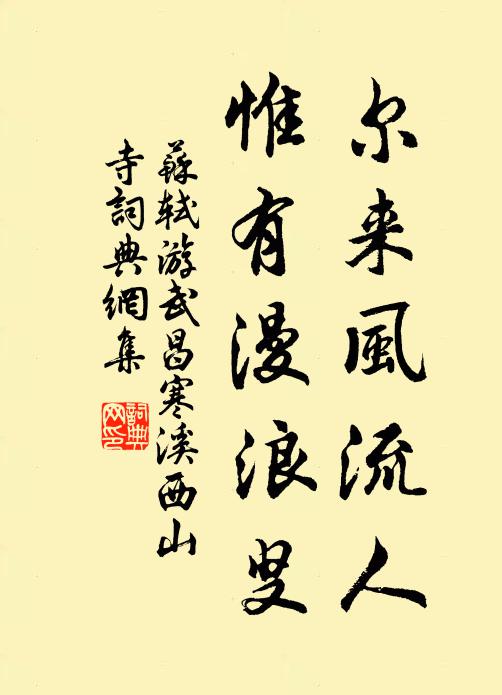 尔来風流人
惟有漫浪叟
蘇軾游武昌寒溪西山
寺詞典網集
詞典網印